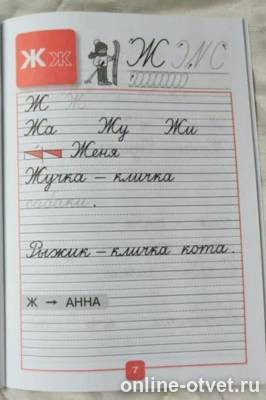 Ж ж Ж
Ж Ж
Жа Жу Жи
Женя
Жучка – кличка
собаки.
Рыжик – кличка кота.
Ж → АННА
7
online-otvet.ru